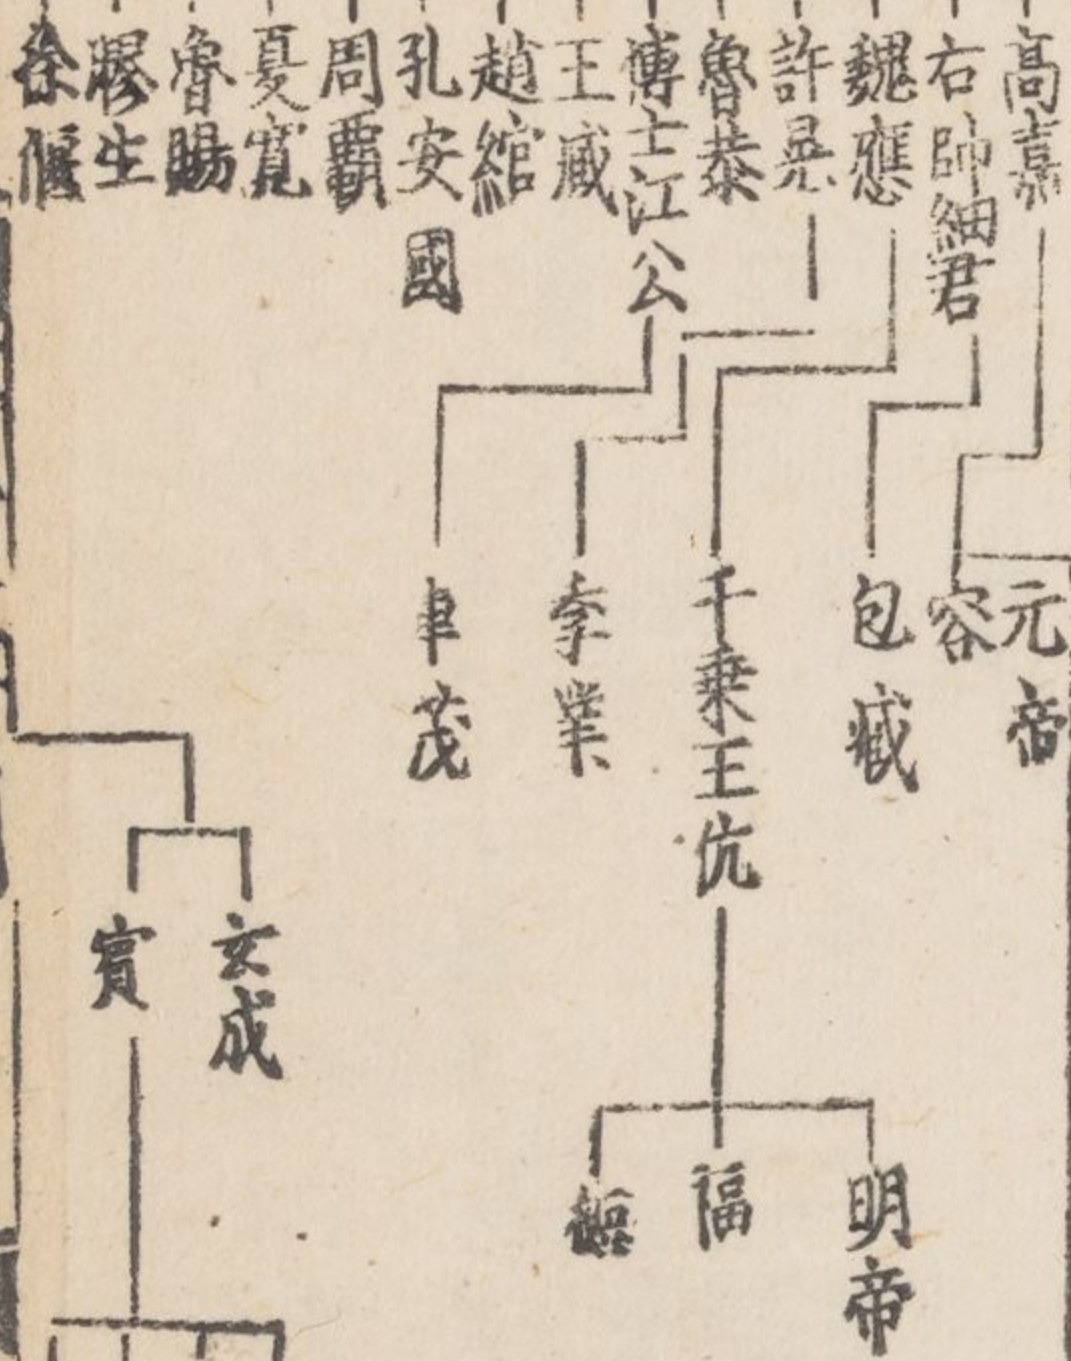 高嘉
右師細君
魏應
許晃
魯恭
博士江公
王臧
趙綰
孔安國
周霸
夏寬
魯賜
繆生
徐偃
元帝
容
包咸
千乘王伉
李業
車茂
玄成
賞
明帝
福